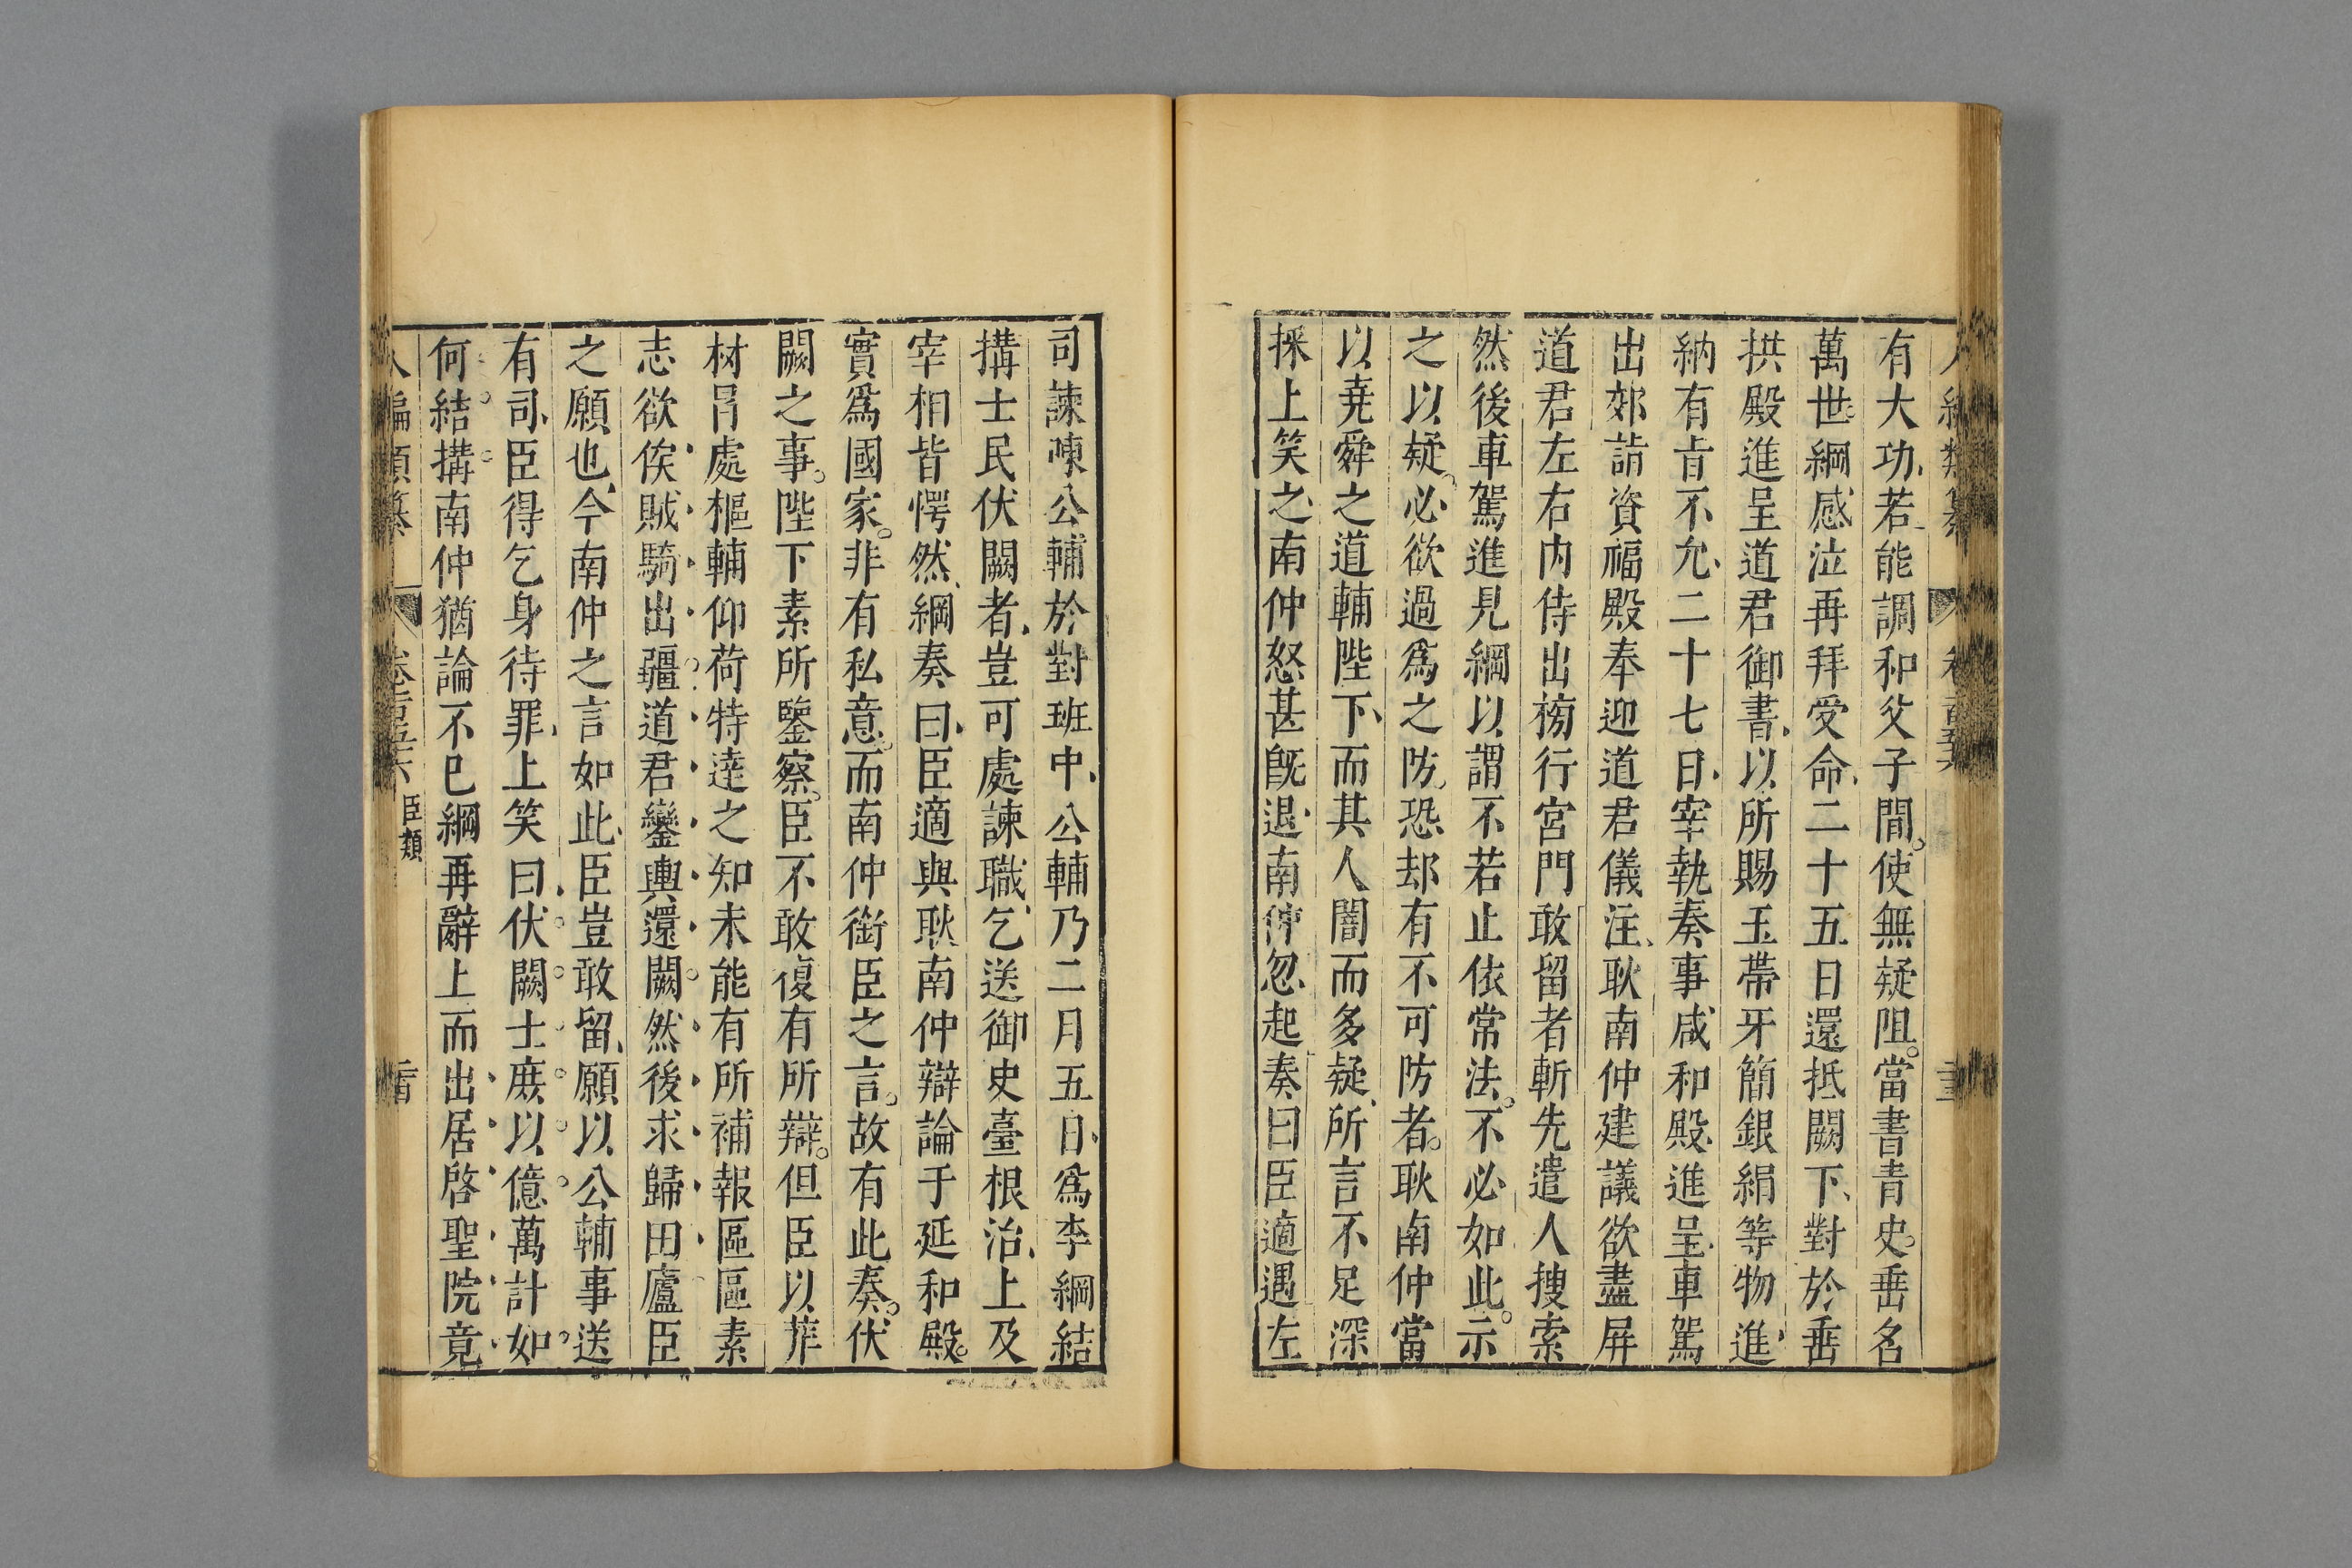 有大功、若能調和父子間。使無疑阻。當書青史。垂名
萬世。綱感泣再拜受命、二十五日還抵闕下、對於垂
拱殿進呈道君御書、以所賜玉帶牙簡銀絹等物進、
納有旨不允、二十七日、宰執奏事咸和殿、進呈、車駕
出郊詣資福殿奉迎道君儀注、耿南仲建議欲盡屏
道君左右内侍出榜行宮門敢留者斬先遣人搜索
然後車駕進見綱以謂不若止依常法。不必如此。示
之以疑。必欲過為之防、恐却有不可防者。耿南仲當
以堯舜之道輔陛下、而其人闇而多疑、所言不足深
採上笑之、南仲怒甚既退、南仲忽起奏曰臣適遇左
司諫陳公輔於對班中、公輔乃二月五日、為李綱結
搆士民伏闕者、豈可處諫職、乞送御史臺根治、上及
宰相皆愕然、綱奏曰、臣適與耿南仲辯論于延和殿。
實為國家。非有私意。而南仲銜臣之言。故有此奏。伏
闕之事。陛下素所鑒察。臣不敢復有所辯。但臣以菲
材冐處樞輔仰荷特達之知未能有所補報區區素
志欲俟賊騎出疆道君鑾輿還闕然後求歸田廬臣
之願也、今南仲之言如此、臣豈敢留、願以公輔事送
有司、臣得乞身待罪、上笑曰、伏闕士庶以億萬計如
何結搆南仲猶論不已綱再辭上而出居啓聖院竟
臣類